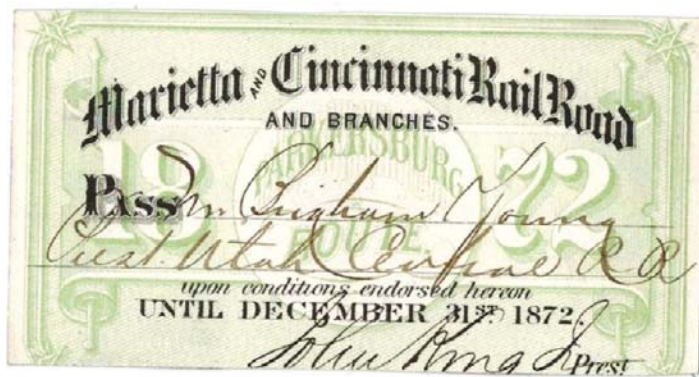 Marietta AND Cincinnati Rail Road
AND BRANCHES.
18 PARKERSBURG 72
ROUTE.
Pass Mr Brigham Young
Prest. Utah Central R R
upon conditions endorsed hereon
UNTIL DECEMBER 31ST 1872.
John King Jr Prest